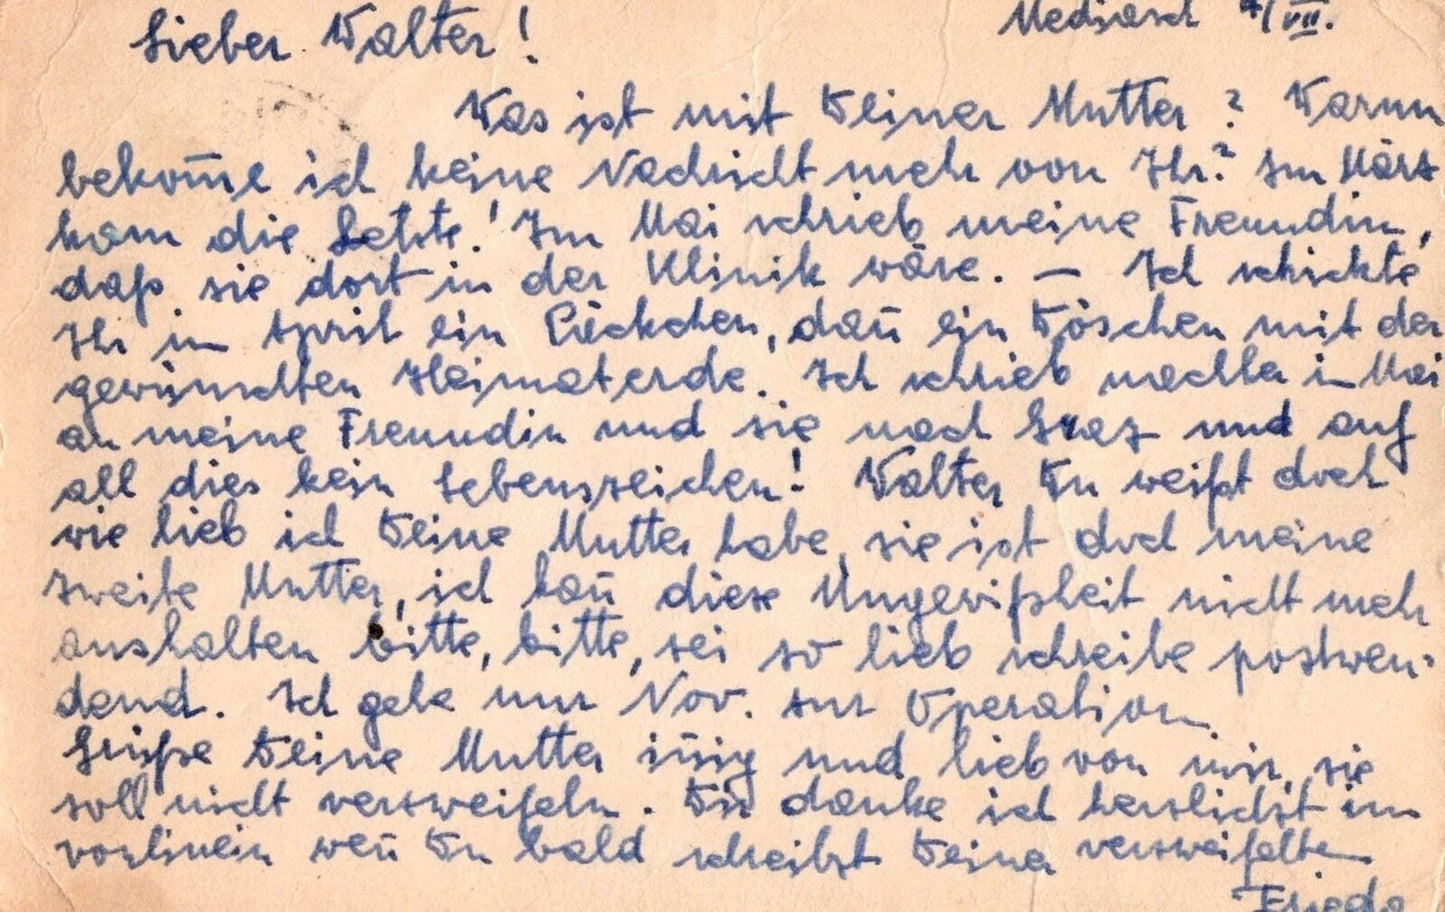 Mediasch 4/VII.
Lieber Walter!
Was ist mit Deiner Mutter? Warum
bekom̄e ich keine Nachricht mehr von Ihr? Im März
kam die Letzte! Im Mai schrieb meine Freundin,
daß sie dort in der Klinik wäre. — Ich schickte
Ihr im April ein Päckchen, dan̄ ein Döschen mit der
gewünschten Heimaterde. Ich schrieb nachher im Mai
an meine Freundin und sie nach Graz und auf
all dies kein Lebenszeichen! Walter Du weißt doch
wie lieb ich Deine Mutter habe, sie ist doch meine
zweite Mutter, ich kan̄ diese Ungewißheit nicht mehr
aushalten bitte, bitte, sei so lieb schreibe postwen-
dend. Ich gehe nur Nov. zur Operation
Grüße Deine Mutter in̄ig und lieb von mir, sie
soll nicht verzweifeln. Dir danke ich herzlichst im
vorhinein wen̄ Du bald schreibst Deine verzweifelte
Frieda